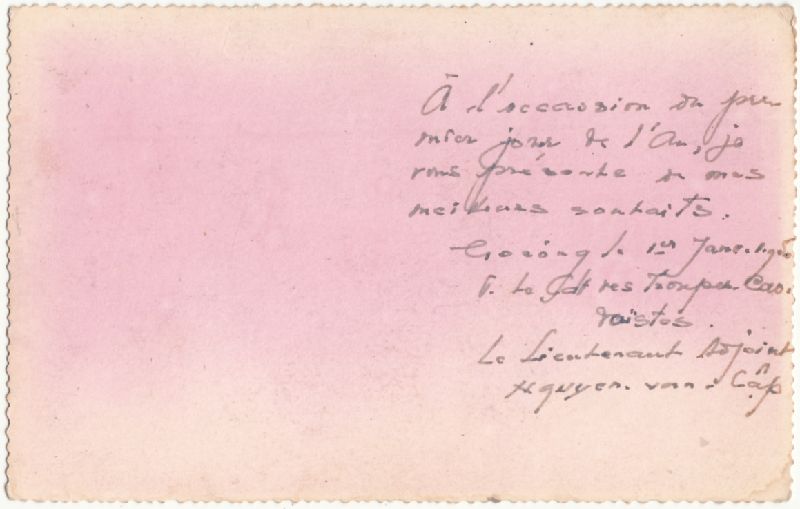 À l'occassion du pre-
mier jour de l'An, je
vous présente de mes
meilleurs souhaits.
Gocông le 1er Janv. 1950
P. Le Cdt des Troupes Cao-
daïstes.
Le Lieutenant Adjoint
Nguyen. van. Câp